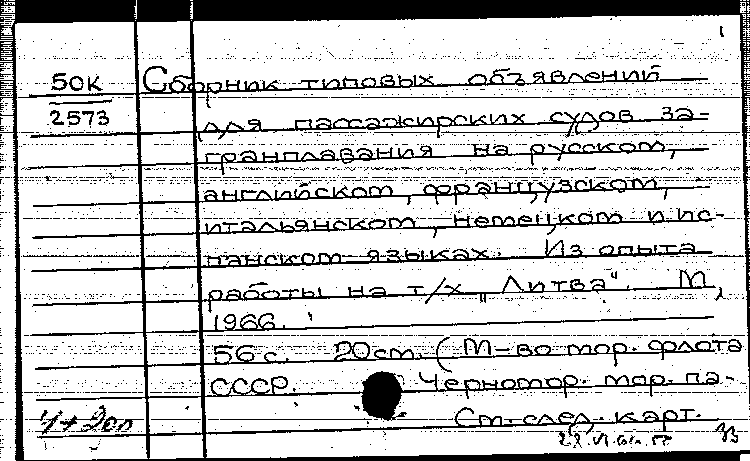 1
50К
2573
Сборник типовых объявлений
для пассажирских судов за-
гранплавания на русском,
английском, французском,
итальянском, немецком и ис-
панском языках. Из опыта
работы на т/х „Литва“. М,
1966.
56 с. 20 см. (М-во мор. флота
СССР. Черномор. мор. па-
См. след. карт.